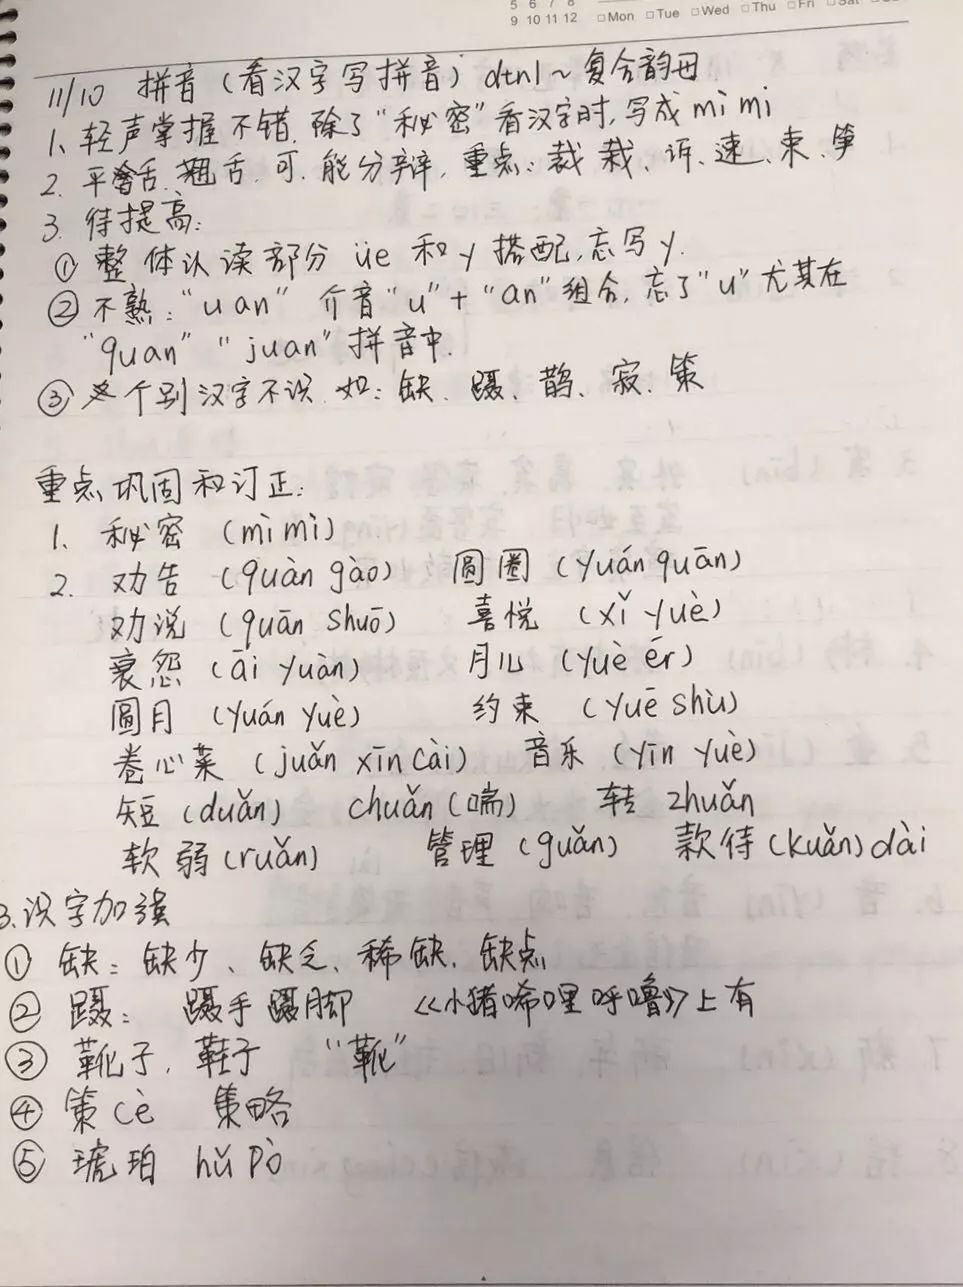 5 6 7 8
9 10 11 12 □Mon □Tue □Wed □Thu □Fri □Sat
11/10 拼音（看汉字写拼音）dtnl～复合韵母
1、轻声掌握不错，除了“秘密”看汉字时，写成mì mi
2. 平舌、翘舌，可，能分辩，重点：裁、栽、诉、速、束、笋
3. 待提高：
① 整体认读部分 üe 和 y 搭配，忘写 y.
② 不熟：“uan” 介音“u”+“an”组合，忘了“u”尤其在
“quan” “juan”拼音中.
③ 个别汉字不识 如：缺、蹑、鹊、寂、策
重点巩固和订正：
1、秘密（mì mì）
2. 劝告（quàn gào） 圆圈（yuán quān）
劝说（quān shuō） 喜悦（xǐ yuè）
哀怨（āi yuàn） 月儿（yuè ér）
圆月（yuán yuè） 约束（yuē shù）
卷心菜（juǎn xīn cài） 音乐（yīn yuè）
短（duǎn） chuǎn（喘） 转 zhuǎn
软弱（ruǎn） 管理（guǎn） 款待（kuǎn）dài
3.汉字加强
① 缺：缺少、缺乏、稀缺、缺点
② 蹑：蹑手蹑脚 《小猪唏哩呼噜》上有
③ 靴子，鞋子 “靴”
④ 策 cè 策略
⑤ 琥珀 hǔ pò